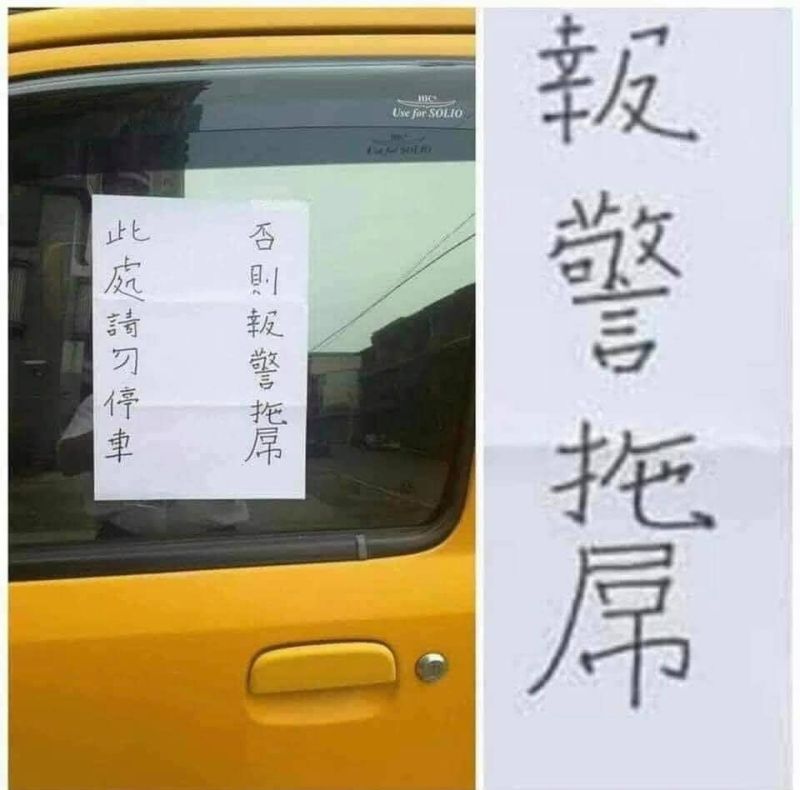 HIC
Use for SOLIO
HIC
Use for SOLIO
此處請勿停車
否則報警拖屌
報警拖屌